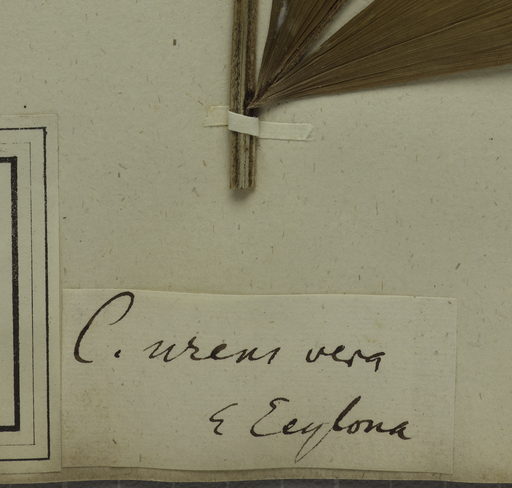 C. urens vera
E Zeylona